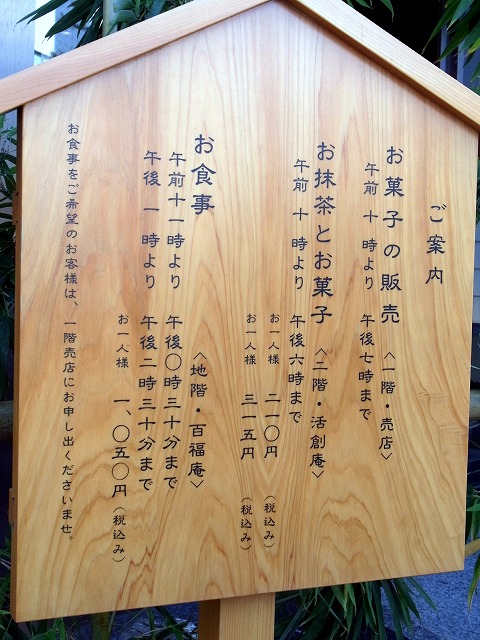 ご案内
お菓子の販売 〈一階・売店〉
午前 十 時より 午後七時まで
お抹茶とお菓子 〈二階・活創庵〉
午前 十 時より 午後六時まで
お一人様 二一〇円 (税込み)
お一人様 三一五円 (税込み)
お食事 〈地階・百福庵〉
午前十一時より 午後〇時三十分まで
午後 一 時より 午後二時三十分まで
お一人様 一、〇五〇円 (税込み)
お食事をご希望のお客様は、一階売店にお申し出くださいませ。